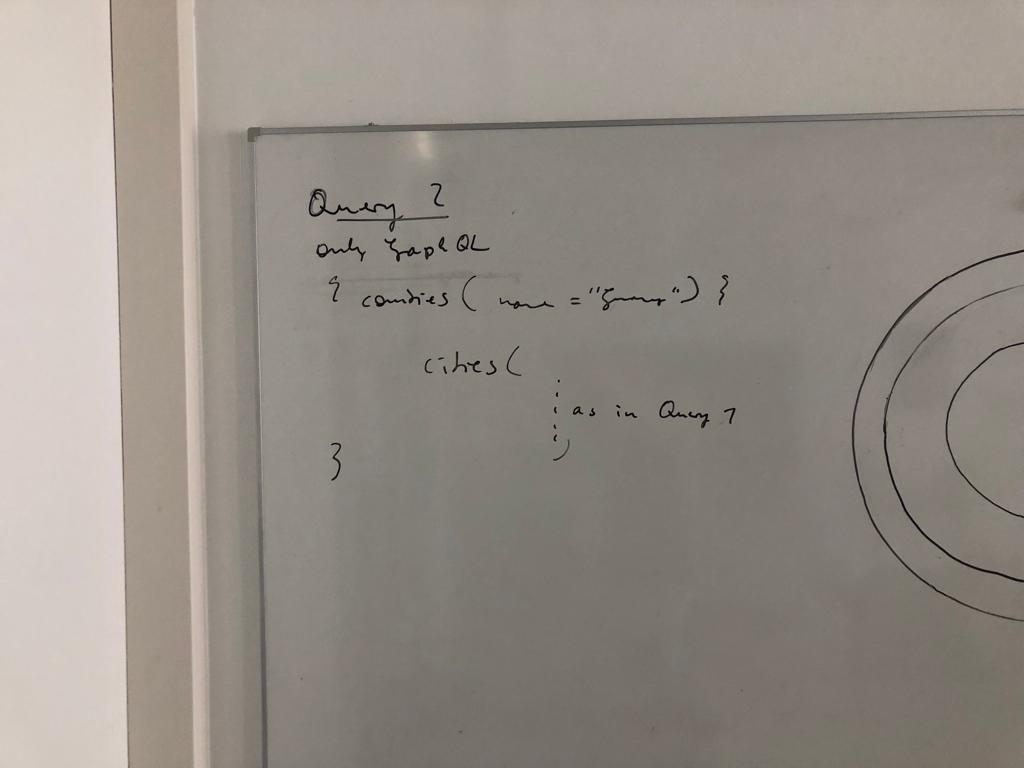 Query 2
only GraphQL
{ countries( name = "Germany") {
cities(
as in Query 1
)
}